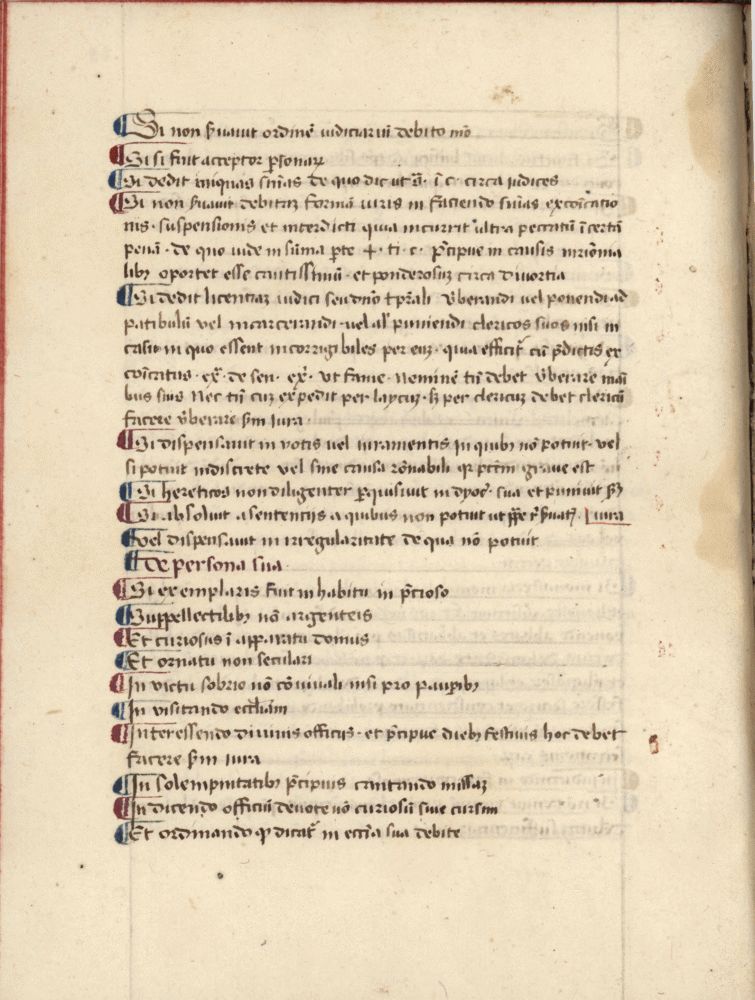 Si non ẜuauit ordinē iudiciariū debito mō
Si si fuit acceptor ꝑsonarꝝ
Si dedit iniquas s̄nias de quo dic ut s̄. ī c. circa iudices
Si non ẜuauit debitaꝫ formā iuris in faciendo s̄nias excōicatio
nis. suspensionis et interdicti quia incurrit ultra peccatū īcertā
penā. de quo uide in sūma ꝑte ti. c. p̄cipue in causis
libꝫ oportet esse cautissimū. et ponderosuꝫ circa diuortia
Si dedit licentiaꝫ iudici seu dn̄o t̄pr̄ali v̄berandi uel ponendi ad
patibulū vel incarcerandi. uel al' puniendi clericos suos nisi in
casu in quo essent incorrigibiles per euꝫ. quia efficit̄ cū p̄dictis ex
cōicatus. ex̄. de sen. ex̄. vt fame. Neminē tn̄ debet v̄berare māi
bus suis Nec tn̄ cuꝫ expedit per laycuꝫ. sꝫ per clericuꝫ debet clericū
facere v̄berare sm̄ iura.
Si dispensauit in votis uel iuramentis in quibꝫ nō potuit. vel
si potuit indiscrete vel sine causa rōnabili qꝛ pctm̄ graue est
Si hereticos non diligenter ꝑquisiuit in dyoc̄. sua et puniuit sm̄
Si absoluit a sententijs a quibus non potuit iura
vel dispensauit in irregularitate de qua nō potuit
de persona sua.
Si exemplaris fuit in habitu in p̄cioso
Suppellectilibꝫ nō argenteis
Et curiosus ī apparatu domus
Et ornatu non seculari
In victu sobrio nō cōuiuali nisi pro pauꝑibꝫ
In visitando eccliam
Interessendo diuinis officijs. et p̄cipue diebꝫ festiuis hoc debet
facere sm̄ iura
In solempnitatibꝫ p̄cipuis cantando missaꝫ
In dicendo officiū deuote nō curiosū siue cursim
Et ordinando ꝙ dicat̄ in eccl̄ia sua debite